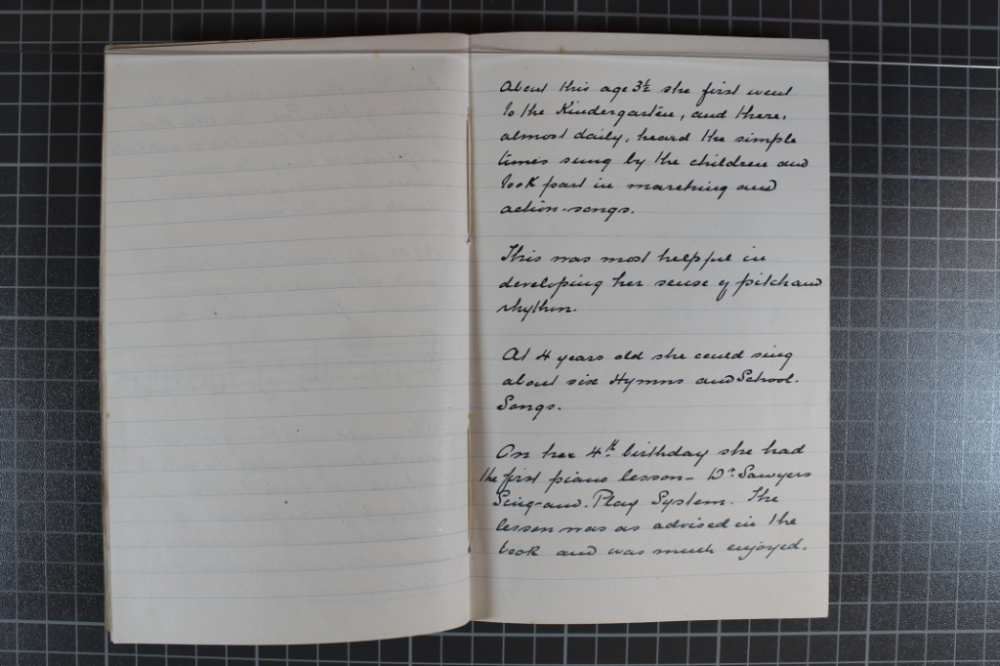 About this age 3½ she first went
to the Kindergarten, and there,
almost daily, heard the simple
tunes sung by the children and
took part in marching and
action-songs.
This was most helpful in
developing her sense of pitch and
rhythm.
At 4 years old she could sing
about six Hymns and School.
Songs.
On her 4th birthday she had
the first piano lesson - Dr. Sawyers
Sing-and-Play System. The
lesson was as advised in the
book and was much enjoyed.